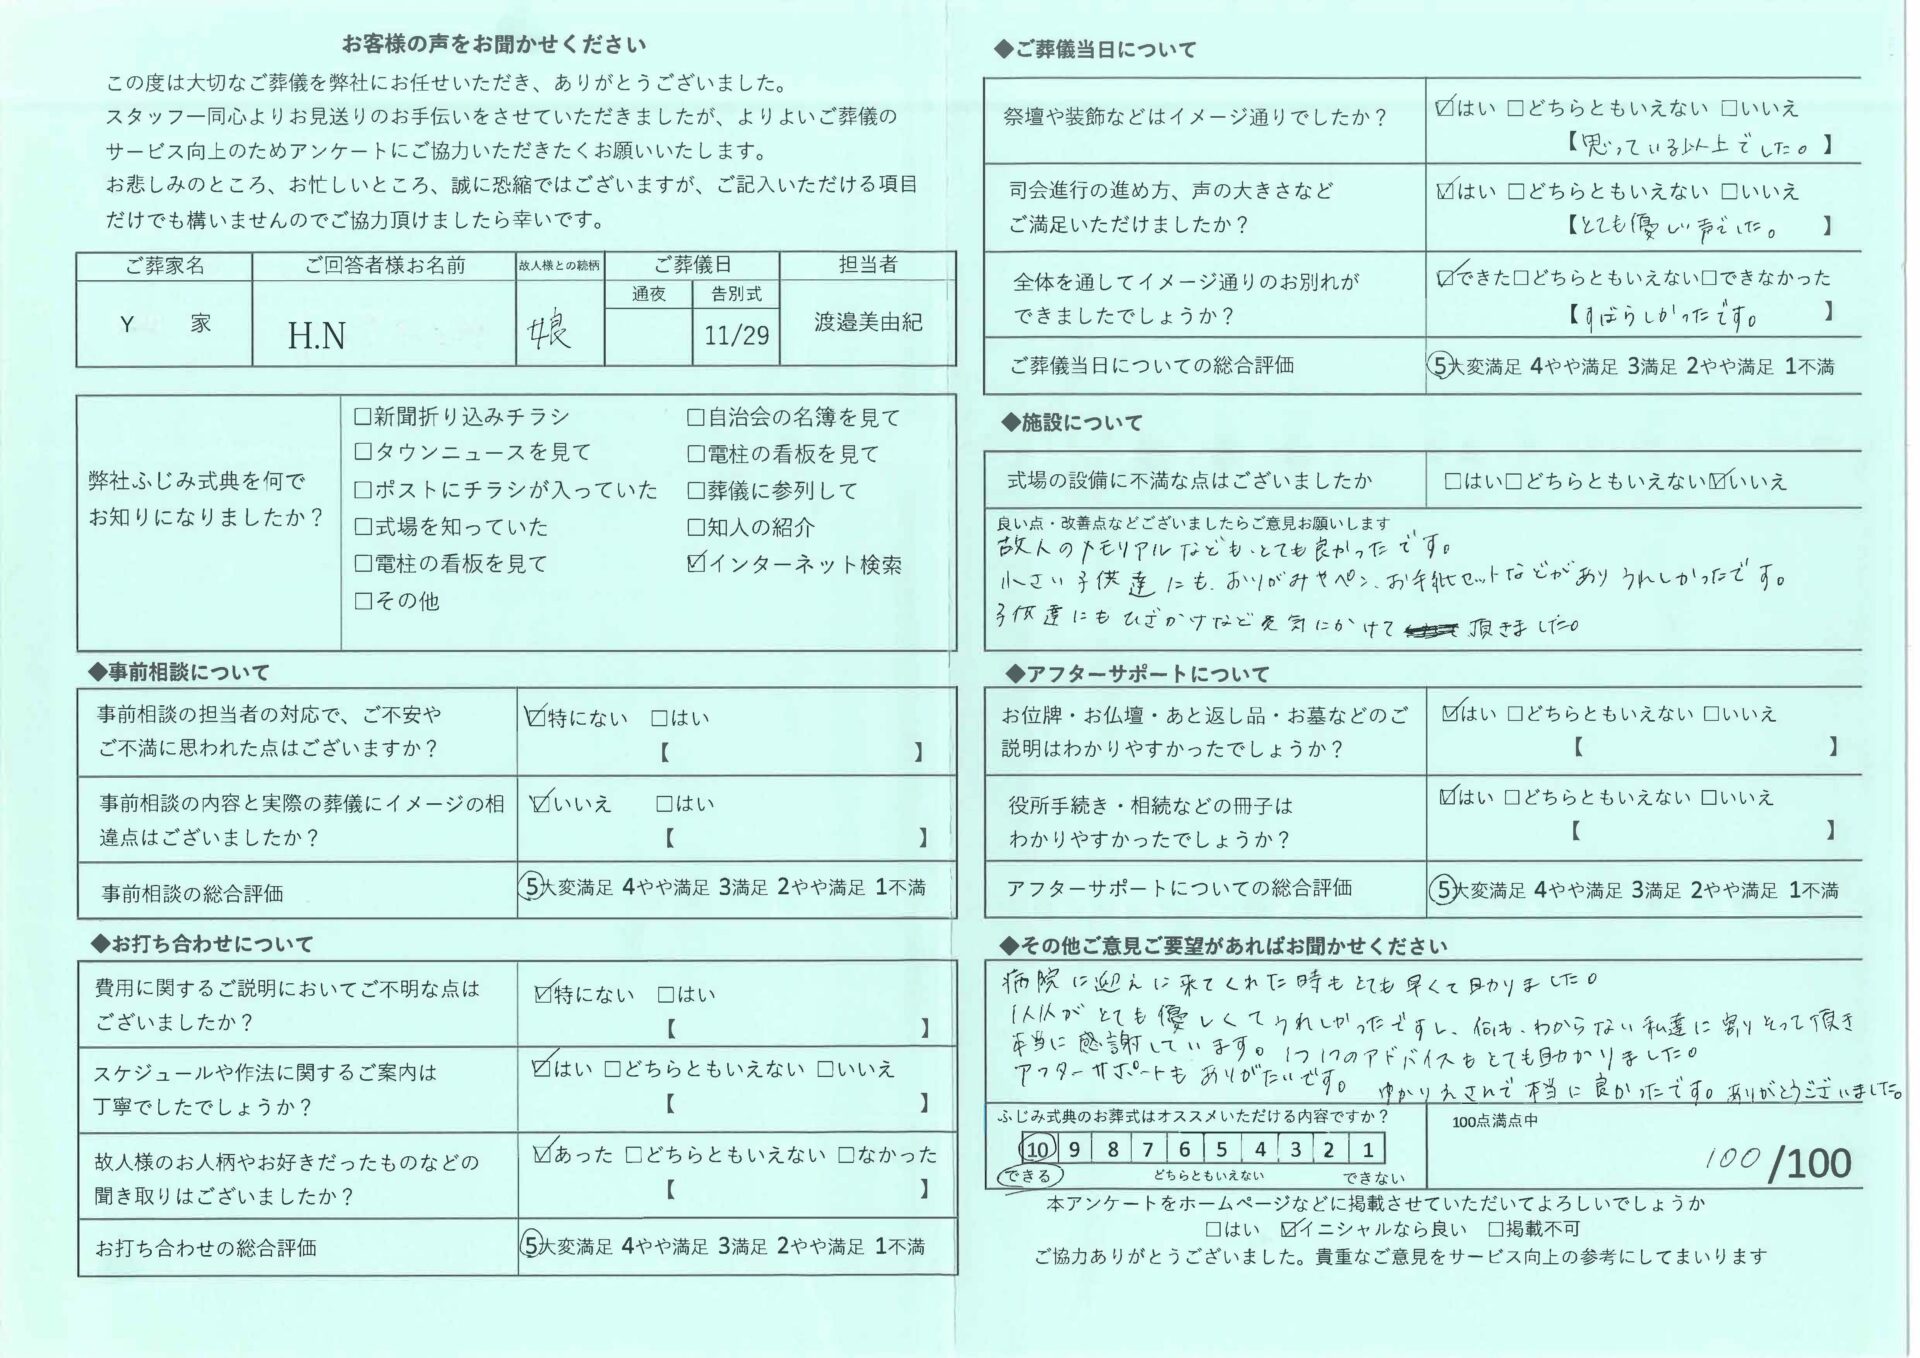 お客様の声をお聞かせください
この度は大切なご葬儀を弊社にお任せいただき、ありがとうございました。
スタッフ一同心よりお見送りのお手伝いをさせていただきましたが、よりよいご葬儀の
サービス向上のためアンケートにご協力いただきたくお願いいたします。
お悲しみのところ、お忙しいところ、誠に恐縮ではございますが、ご記入いただける項目
だけでも構いませんのでご協力頂けましたら幸いです。
ご葬家名 ご回答者様お名前 故人様との続柄 ご葬儀日 担当者
通夜 告別式
Y 家 H.N 娘 11/29 渡邉美由紀
弊社ふじみ式典を何で
お知りになりましたか？
□新聞折り込みチラシ □自治会の名簿を見て
□タウンニュースを見て □電柱の看板を見て
□ポストにチラシが入っていた □葬儀に参列して
□式場を知っていた □知人の紹介
□電柱の看板を見て ☑インターネット検索
□その他
◆事前相談について
事前相談の担当者の対応で、ご不安や
ご不満に思われた点はございますか？
☑特にない □はい
【 】
事前相談の内容と実際の葬儀にイメージの相
違点はございましたか？
☑いいえ □はい
【 】
事前相談の総合評価 ⑤大変満足 4やや満足 3満足 2やや満足 1不満
◆お打ち合わせについて
費用に関するご説明においてご不明な点は
ございましたか？
☑特にない □はい
【 】
スケジュールや作法に関するご案内は
丁寧でしたでしょうか？
☑はい □どちらともいえない □いいえ
【 】
故人様のお人柄やお好きだったものなどの
聞き取りはございましたか？
☑あった □どちらともいえない □なかった
【 】
お打ち合わせの総合評価 ⑤大変満足 4やや満足 3満足 2やや満足 1不満
◆ご葬儀当日について
祭壇や装飾などはイメージ通りでしたか？
☑はい □どちらともいえない □いいえ
【思っている以上でした。】
司会進行の進め方、声の大きさなど
ご満足いただけましたか？
☑はい □どちらともいえない □いいえ
【とても優しい声でした。 】
全体を通してイメージ通りのお別れが
できましたでしょうか？
☑できた□どちらともいえない□できなかった
【すばらしかったです。 】
ご葬儀当日についての総合評価 ⑤大変満足 4やや満足 3満足 2やや満足 1不満
◆施設について
式場の設備に不満な点はございましたか □はい□どちらともいえない☑いいえ
良い点・改善点などございましたらご意見お願いします
故人のメモリアルなども、とても良かったです。
小さい子供達にも、おりがみやペン、お手紙セットなどがありうれしかったです。
子供達にもひざかけなど気にかけて 頂きました。
◆アフターサポートについて
お位牌・お仏壇・あと返し品・お墓などのご
説明はわかりやすかったでしょうか？
☑はい □どちらともいえない □いいえ
【 】
役所手続き・相続などの冊子は
わかりやすかったでしょうか？
☑はい □どちらともいえない □いいえ
【 】
アフターサポートについての総合評価 ⑤大変満足 4やや満足 3満足 2やや満足 1不満
◆その他ご意見ご要望があればお聞かせください
病院に迎えに来てくれた時もとても早くて助かりました。
1人1人がとても優しくてうれしかったですし、何も、わからない私達に寄りそって頂き
本当に感謝しています。1つ1つのアドバイスもとても助かりました。
アフターサポートもありがたいです。 ゆかりえさんで本当に良かったです。ありがとうございました。
ふじみ式典のお葬式はオススメいただける内容ですか？
10 9 8 7 6 5 4 3 2 1
できる どちらともいえない できない
100点満点中
100/100
本アンケートをホームページなどに掲載させていただいてよろしいでしょうか
□はい ☑イニシャルなら良い □掲載不可
ご協力ありがとうございました。貴重なご意見をサービス向上の参考にしてまいります